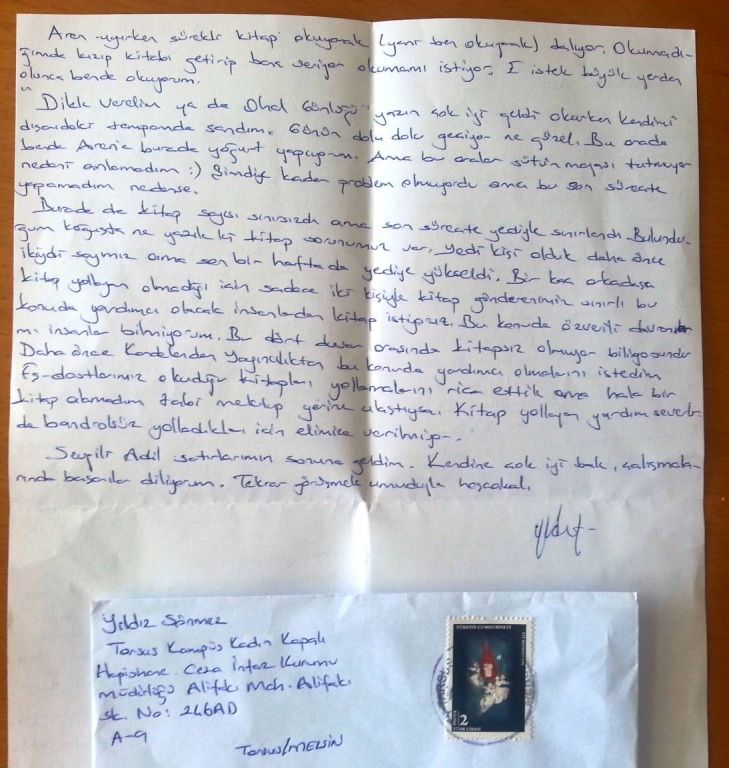 Aren uyurken sürekli kitap okuyarak (yani ben okuyarak) dalıyor. Okumadı-
ğımda kızıp kitabı getirip bana veriyor okumamı istiyor. E istek büyük yerden
olunca bende okuyorum.
"Dikili Verelim ya da Ohal Günlüğü" yazın çok iyi geldi okurken kendimi
dışarıdaki tempomda sandım. Günün dolu dolu geçiyor ne güzel. Bu arada
bende Aren'e burada yoğurt yapıyorum. Ama bu aralar sütün mayası tutmuyor
nedeni anlamadım :) Şimdiye kadar problem olmuyordu ama bu son süreçte
yapamadım nedense.
Burada da kitap sayısı sınırsızdı ama son süreçte yediyle sınırlandı. Bulundu-
ğum koğuşta ne yazık ki kitap sorunumuz var. Yedi kişi olduk daha önce
ikiydi sayımız ama son bir haftada yediye yükseldi. Bir kaç arkadaşa
kitap yollayan olmadığı için sadece iki kişiyle kitap gönderenimiz sınırlı bu
konuda yardımcı olacak insanlardan kitap istiyoruz. Bu konuda özverili davranır
mı insanlar bilmiyorum. Bu dört duvar arasında kitapsız olmuyor biliyorsundur
Daha önce Kardelenden Yayıncılıktan bu konuda yardımcı olmalarını istedim
Eş-dostlarımız okuduğu kitapları yollamalarını rica ettik ama hala bir
kitap alamadım tabi mektup yerine ulaştıysa. Kitap yollayan yardım sever-
de bandrolsüz yolladıkları için elimize verilmiyor.
Sevgili Adil satırlarımın sonuna geldim. Kendine çok iyi bak, çalışmala-
rında başarılar diliyorum. Tekrar görüşmek umuduyla hoşçakal.
Yıldız Sönmez
Tarsus Kampüs Kadın Kapalı
Hapishane. Ceza İnfaz Kurumu
müdürlüğü Alifakı Mah. Alifakı
sk. No: 246AD
A-9
Tarsus/MERSİN
TÜRKİYE CUMHURİYETİ
POSTA 2
TÜRK LİRASI